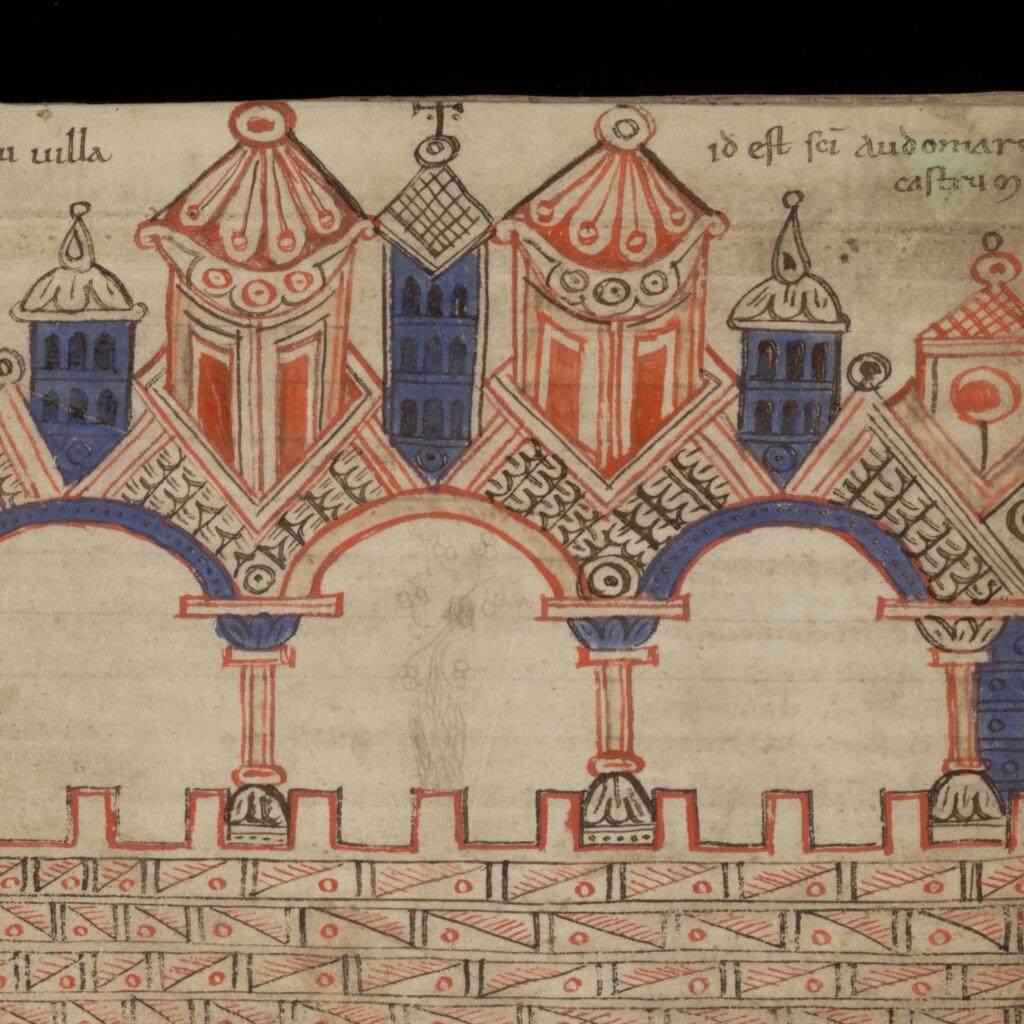 uilla
id est sci̅ Audomari
castrum